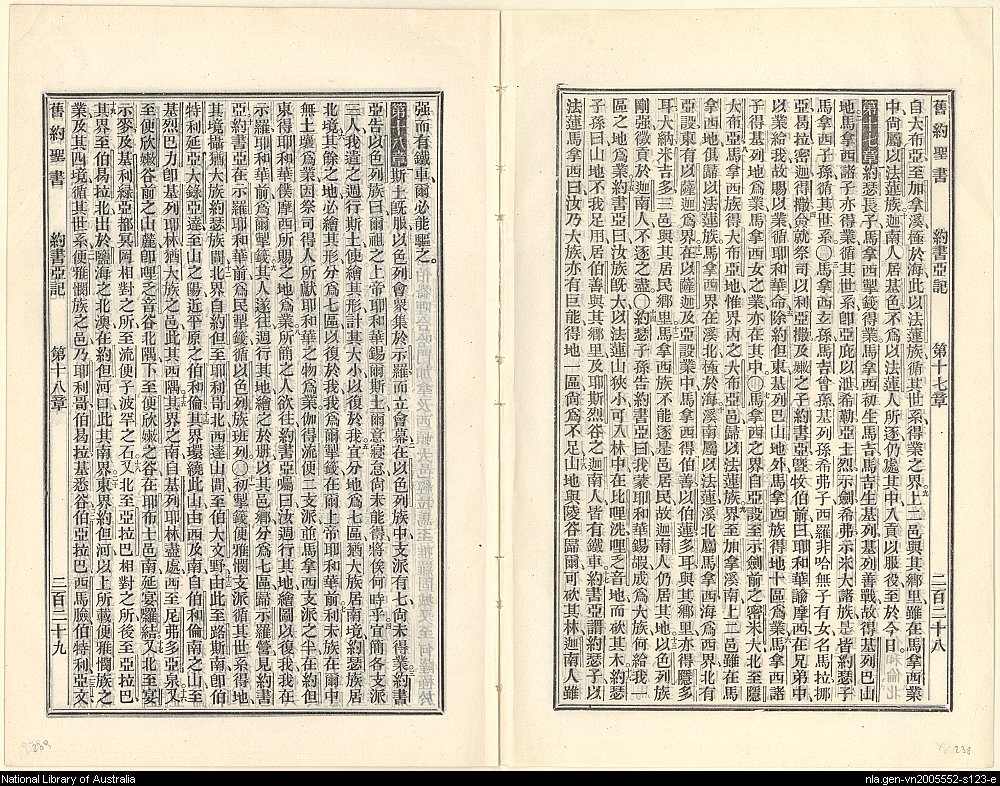 舊約聖書 約書亞記 第十七章 二百二十八
自大布亞至加拿溪極於海此以法蓮族循其世系得業之界上二邑與其鄉里雖在馬拿西業
中尙屬以法蓮族迦南人居基色不爲以法蓮人所逐仍處其中入貢以服役至於今日
第十七章約瑟長子馬拿西掣籤得業馬拿西初生馬吉馬吉生基列基列善戰故得基列巴山
地馬拿西諸子亦得業循其世系卽亞庇以泄希勒亞士烈示劍希弗示米大諸族是皆約瑟子
馬拿西子孫循其世系〇馬拿西玄孫馬吉曾孫基列孫希弗子西羅非哈無子有女名馬拉挪
亞曷拉密迦得撒僉就祭司以利亞撒及嫩之子約書亞曁牧伯前曰耶和華諭摩西在兄弟中
以業給我故賜以業循耶和華命除約但東基列巴山地外馬拿西族得地十區爲業馬拿西諸
子得基列地爲業馬拿西女之業亦在其中〇馬拿西之界自亞設至示劍前之密米大北至居
大布亞馬拿西族得大布亞地惟界內之大布亞邑歸以法蓮族界至加拿溪南上二邑雖在馬
拿西地俱歸以法蓮族馬拿西界在溪北極於海溪南屬以法蓮溪北屬馬拿西海爲西界北有
亞設東有以薩迦爲界在以薩迦及亞設業中馬拿西得伯善以伯蓮多耳與其鄉里亦得隱多
耳大納米吉多三邑與其居民鄉里馬拿西族不能逐是邑居民故迦南人仍居其地以色列族
剛强徵貢於迦南人不逐之盡〇約瑟子孫告約書亞曰我蒙耶和華錫嘏成爲大族何給我一
區之地爲業約書亞曰汝族旣大以法蓮山狹小可入林中在比哩洗哩乏音地而砍其木約瑟
子孫曰山地不我足用居伯善與其鄉里及耶斯烈谷之迦南人皆有鐵車約書亞謂約瑟子以
法蓮馬拿西曰汝乃大族亦有巨能得地一區尙爲不足山地與陵谷歸爾可砍其林迦南人雖
238
舊約聖書 約書亞記 第十八章 二百二十九
强而有鐵車爾必能驅之
第十八章斯土旣服以色列會衆集於示羅而立會幕在以色列族中支派有七尙未得業約書
亞告以色列族曰爾祖之上帝耶和華錫爾斯土爾意寖怠尙未能得將俟何時乎宜簡各支派
三人我遣之週行斯土使繪其形計其大小以復於我宜分地爲七區猶大族居南境約瑟族居
北境其餘之地必繪其形分爲七區以復於我我爲爾掣籤在爾上帝耶和華前利未族在爾中
無土壤爲業因祭司得人所獻耶和華之物爲業伽得流便二支派並馬拿西支派之半在約但
東得耶和華僕摩西所賜之地爲業所簡之人欲往約書亞囑曰汝週行其地繪圖以復我我在
示羅耶和華前爲爾掣籤其人遂往週行其地繪之於册以其邑鄉分爲七區歸示羅營見約書
亞約書亞在示羅耶和華前爲民掣籤循以色列族班列〇初掣籤便雅憫支派循其世系得地
其境攝猶大族約瑟族間北界自約但至耶利哥北西達山間至伯大文野由此至路斯南卽伯
特利延亞大錄亞達至山之陽近平原之伯和倫其界環繞此山由西及南自伯和倫南之山至
基烈巴力卽基列耶林猶大族之邑此其西隅其界之南自基列耶林盡處西至尼弗多亞泉又
至便欣嫩谷前之山麓卽哩乏音谷北隅下至便欣嫩之谷在耶布士邑南延宴羅結又北至宴
示麥及基利綠亞都冥岡相對之所至流便子波罕之石又北至亞拉巴相對之所後至亞拉巴
其界至伯曷拉北出於鹽海之北澳在約但河口此其南界東界約但河以上所載便雅憫族之
業及其四境循其世系便雅憫族之邑乃耶利哥伯曷拉基悉谷伯亞拉巴西馬臉伯特利亞文
239
National Library of Australia
nla.gen-vn2005552-s123-e